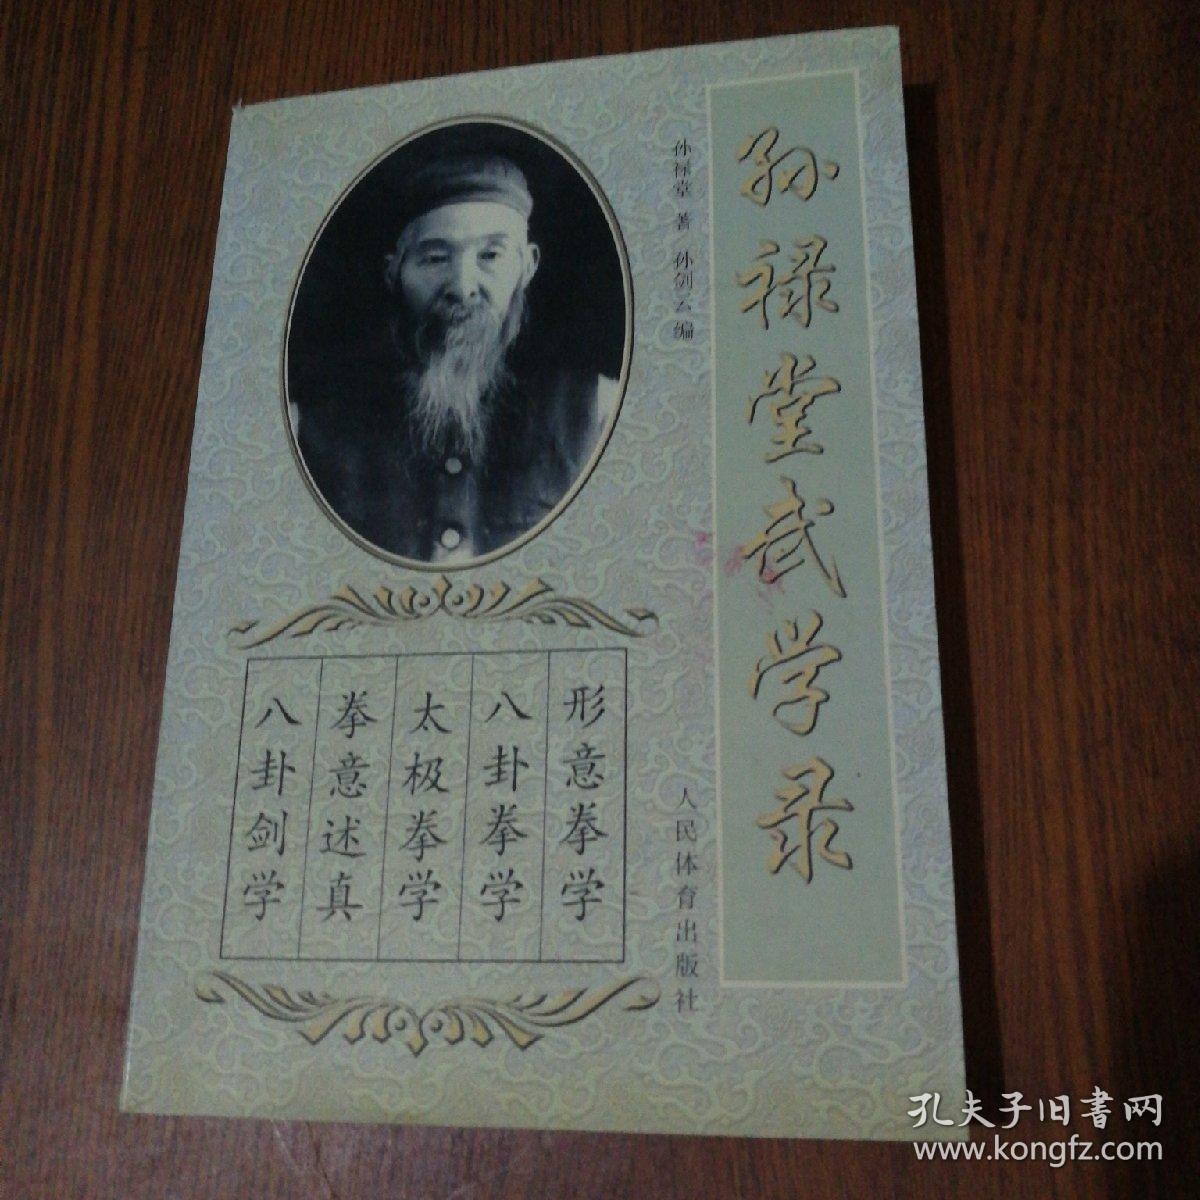 孙禄堂武学录
孙禄堂 著 孙剑云 编
人民体育出版社
形意拳学
八卦拳学
太极拳学
拳意述真
八卦剑学
孔夫子旧書网
www.kongfz.com